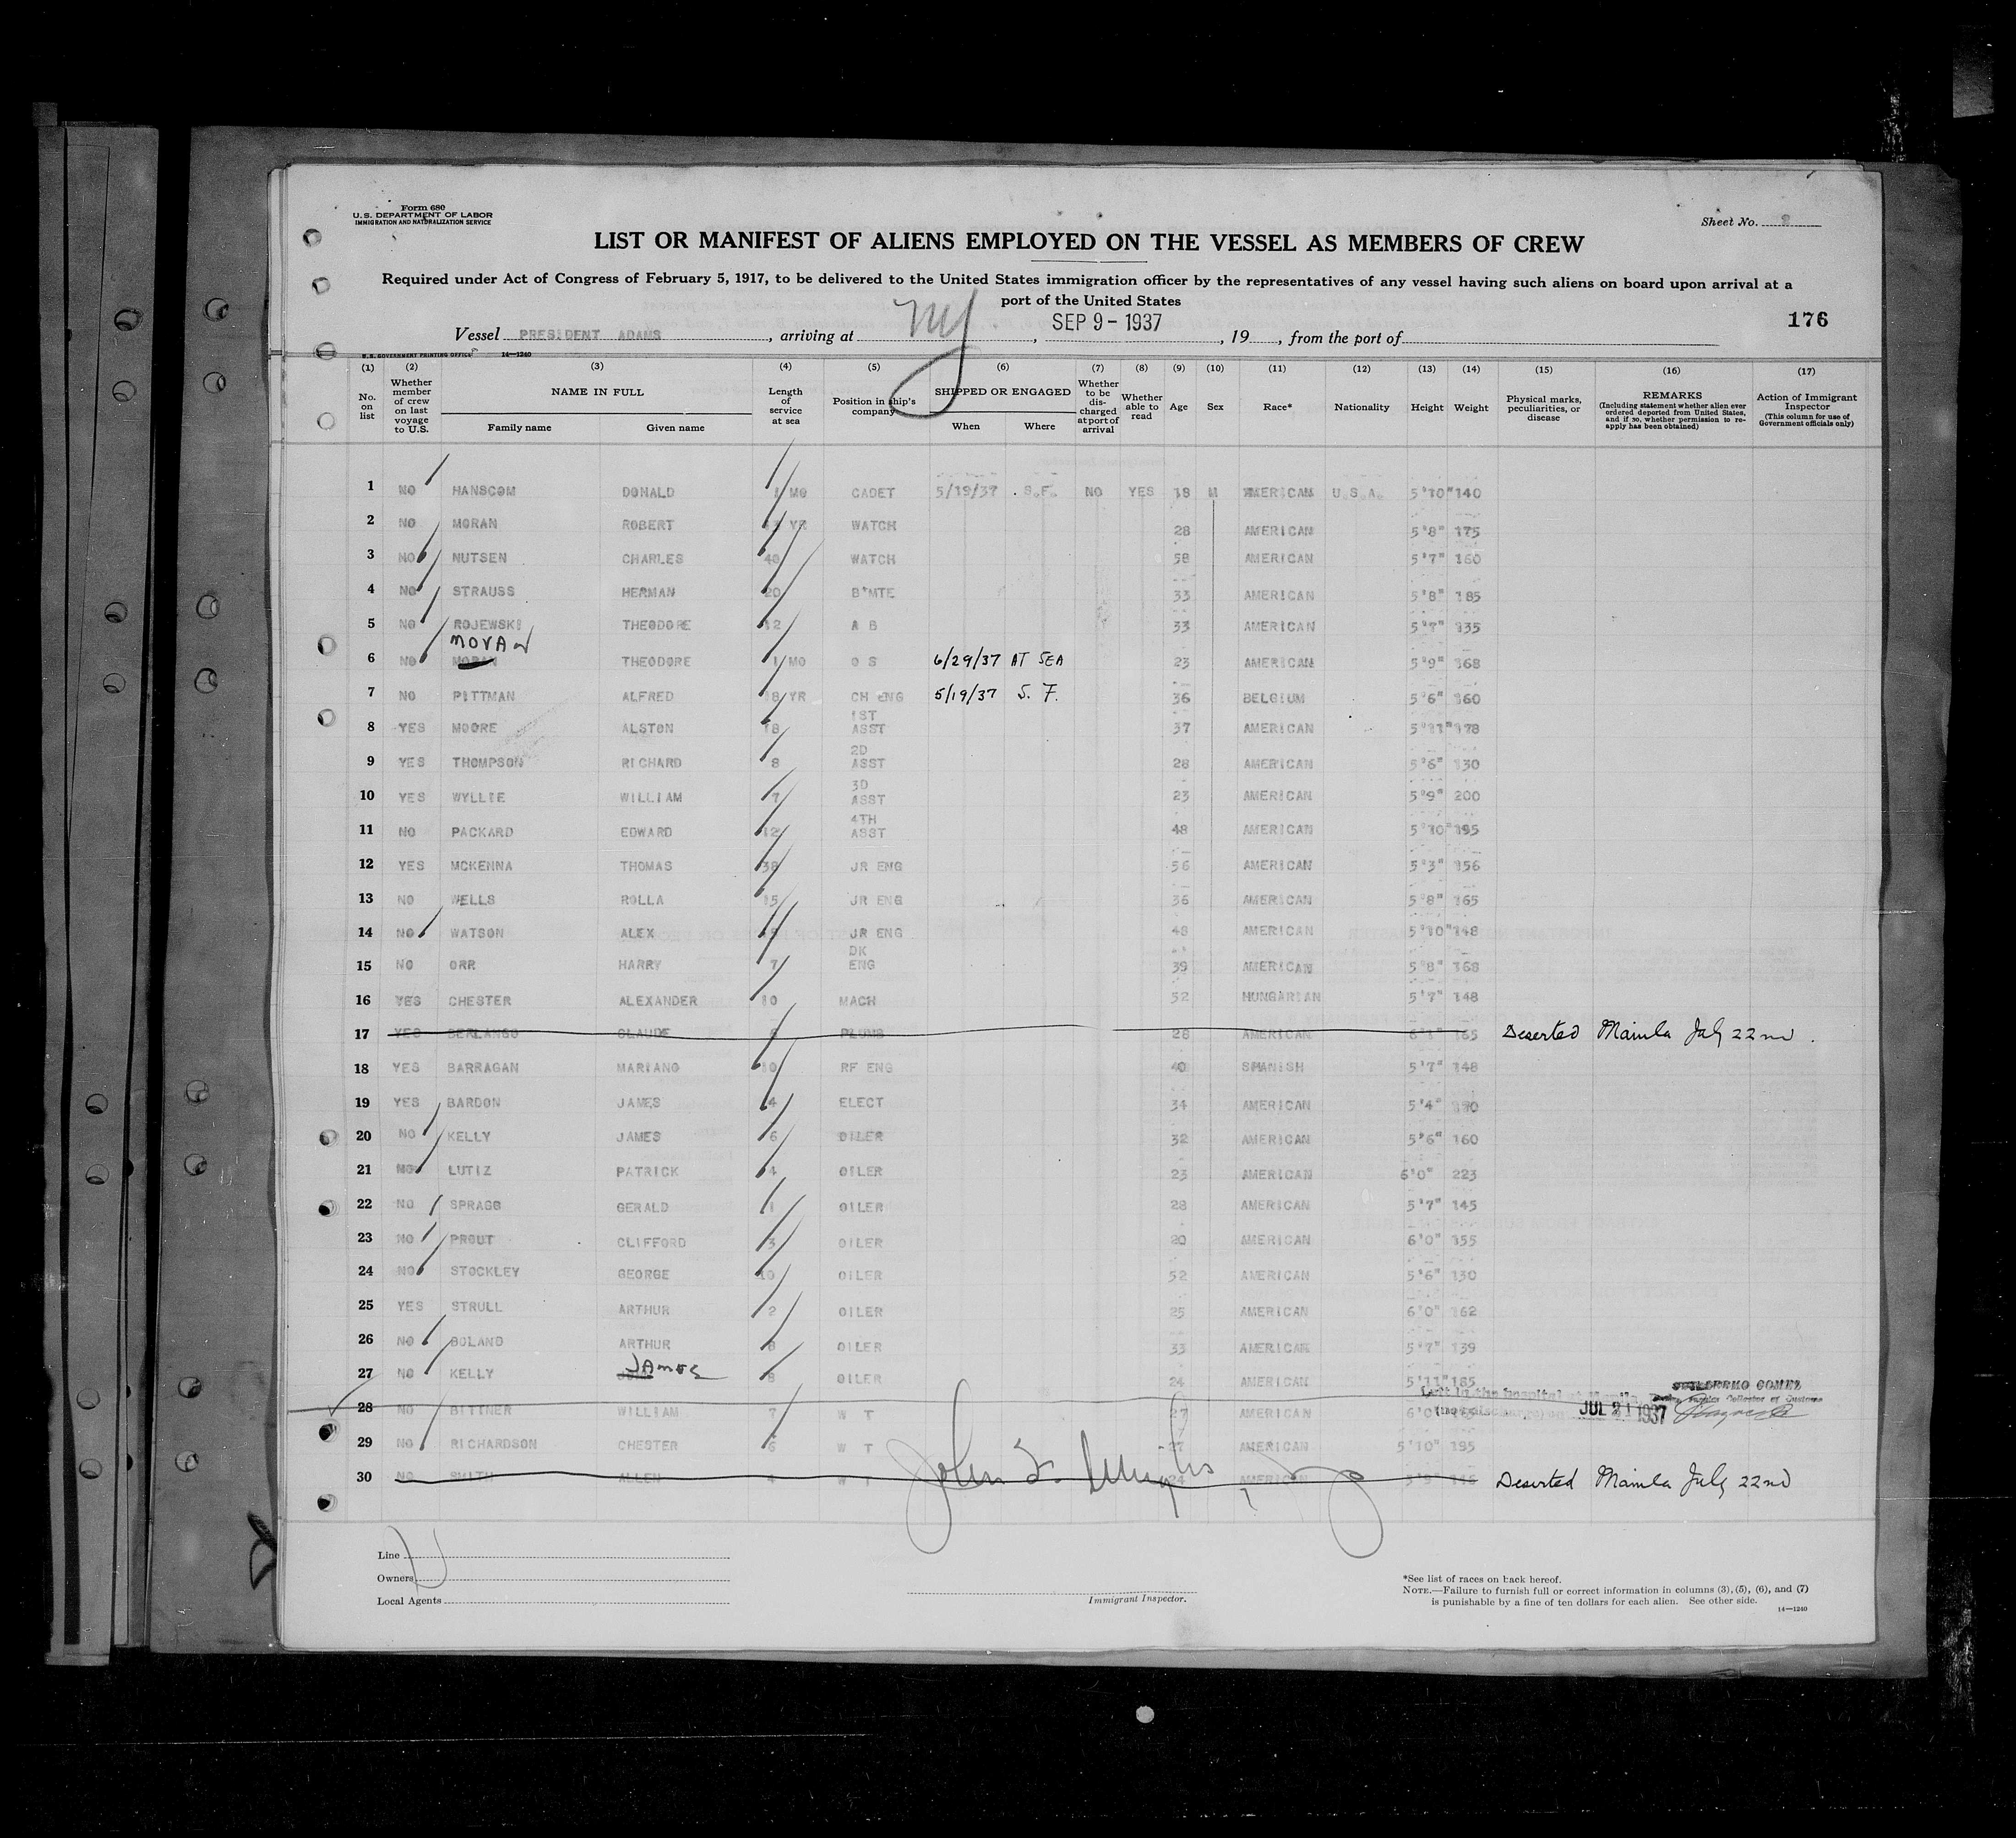 Form 680
U.S. DEPARTMENT OF LABOR
IMMIGRATION AND NATURALIZATION SERVICE
Sheet No.
LIST OR MANIFEST OF ALIENS EMPLOYED ON THE VESSEL AS MEMBERS OF CREW
Required under Act of Congress of February 5, 1917, to be delivered to the United States immigration officer by the representatives of any vessel having such aliens on board upon arrival at a
port of the United States
Vessel PRESIDENT ADAMS, arriving at NY, SEP 9 - 1937, 19, from the port of
176
U.S. GOVERNMENT PRINTING OFFICE 14—1240
(1) (2) (3) (4) (5) (6) (7) (8) (9) (10) (11) (12) (13) (14) (15) (16) (17)
No. on list
Whether member of crew on last voyage to U.S.
NAME IN FULL
Family name Given name
Length of service at sea
Position in ship's company
SHIPPED OR ENGAGED
When Where
Whether to be discharged at port of arrival
Whether able to read
Age Sex Race* Nationality Height Weight
Physical marks, peculiarities, or disease
REMARKS
(Including statement whether alien ever ordered deported from United States, and if so, whether permission to re-apply has been obtained)
Action of Immigrant Inspector
(This column for use of Government officials only)
1 NO HANSCOM DONALD 1 MO CADET 5/19/37 S.F. NO YES 18 M AMERICAN U.S.A. 5'10" 140
2 NO MORAN ROBERT YR WATCH 28 AMERICAN 5'8" 175
3 NO NUTSEN CHARLES 40 WATCH 58 AMERICAN 5'7" 160
4 NO STRAUSS HERMAN 20 B'MTE 33 AMERICAN 5'8" 185
5 NO ROJEWSKI THEODORE 12 A B 33 AMERICAN 5'7" 135
6 NO MORAN THEODORE 1 MO O S 6/29/37 AT SEA 23 AMERICAN 5'9" 168
7 NO PITTMAN ALFRED 18 YR CH ENG 5/19/37 S. F. 36 BELGIUM 5'6" 160
8 YES MOORE ALSTON 18 1ST ASST 37 AMERICAN 5'11" 178
9 YES THOMPSON RICHARD 8 2D ASST 28 AMERICAN 5'6" 130
10 YES WYLLIE WILLIAM 7 3D ASST 23 AMERICAN 5'9" 200
11 NO PACKARD EDWARD 12 4TH ASST 48 AMERICAN 5'10" 195
12 YES MCKENNA THOMAS 38 JR ENG 56 AMERICAN 5'3" 156
13 NO WELLS ROLLA 15 JR ENG 36 AMERICAN 5'8" 165
14 NO WATSON ALEX JR ENG 48 AMERICAN 5'10" 148
15 NO ORR HARRY 7 DK ENG 39 AMERICAN 5'8" 168
16 YES CHESTER ALEXANDER 10 MACH 52 HUNGARIAN 5'7" 148
17 YES BERLANGO CLAUDE PLUMB 28 AMERICAN 6'1" 165 Deserted Manila July 22nd.
18 YES BARRAGAN MARIANO 10 RF ENG 40 SPANISH 5'7" 148
19 YES BARDON JAMES 4 ELECT 34 AMERICAN 5'4"
20 NO KELLY JAMES 6 OILER 32 AMERICAN 5'6" 160
21 NO LUTIZ PATRICK 4 OILER 23 AMERICAN 6'0" 223
22 NO SPRAGG GERALD 1 OILER 28 AMERICAN 5'7" 145
23 NO PROUT CLIFFORD 3 OILER 20 AMERICAN 6'0" 155
24 NO STOCKLEY GEORGE 10 OILER 52 AMERICAN 5'6" 130
25 YES STRULL ARTHUR 2 OILER 25 AMERICAN 6'0" 162
26 NO BOLAND ARTHUR 8 OILER 33 AMERICAN 5'7" 139
27 NO KELLY JAMES 8 OILER 24 AMERICAN 5'11" 185
28 NO BITTNER WILLIAM 7 W T 27 AMERICAN 6'0" Left in the hospital at Manila JUL 21 1937 GOMEZ Collector of Customs
29 NO RICHARDSON CHESTER 6 W T 27 AMERICAN 5'10" 195
30 NO SMITH ALLEN 4 W T 24 AMERICAN Deserted Manila July 22nd
Line
Owners
Local Agents
Immigrant Inspector.
*See list of races on back hereof.
NOTE.—Failure to furnish full or correct information in columns (3), (5), (6), and (7)
is punishable by a fine of ten dollars for each alien. See other side.
14—1240